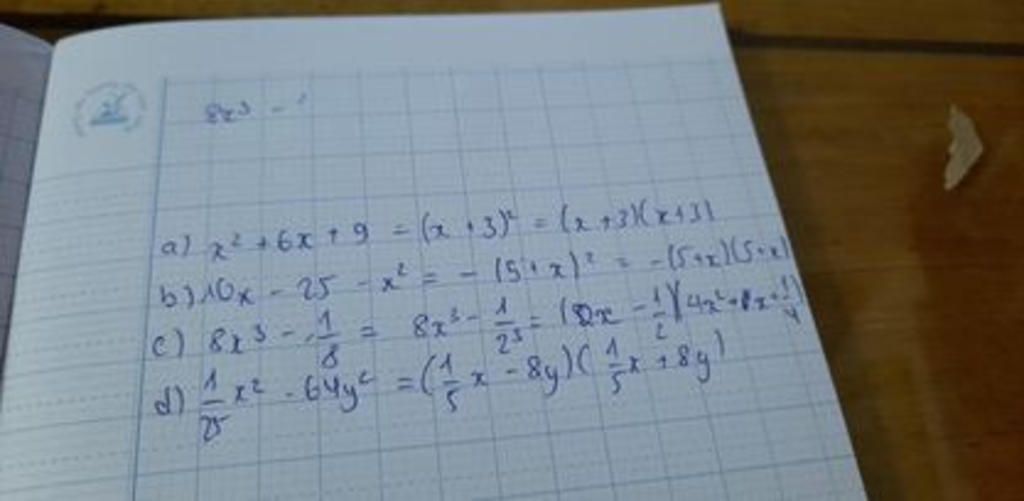 8x³ -
a) x² + 6x + 9 = (x + 3)² = (x + 3)(x + 3)
b) 10x - 25 - x² = - (5 + x)² = -(5+x)(5+x)
c) 8x³ - 1/8 = 8x³ - 1/2³ = (2x - 1/2)(4x² + x + 1/4)
d) 1/25 x² - 64y² = (1/5 x - 8y)(1/5 x + 8y)